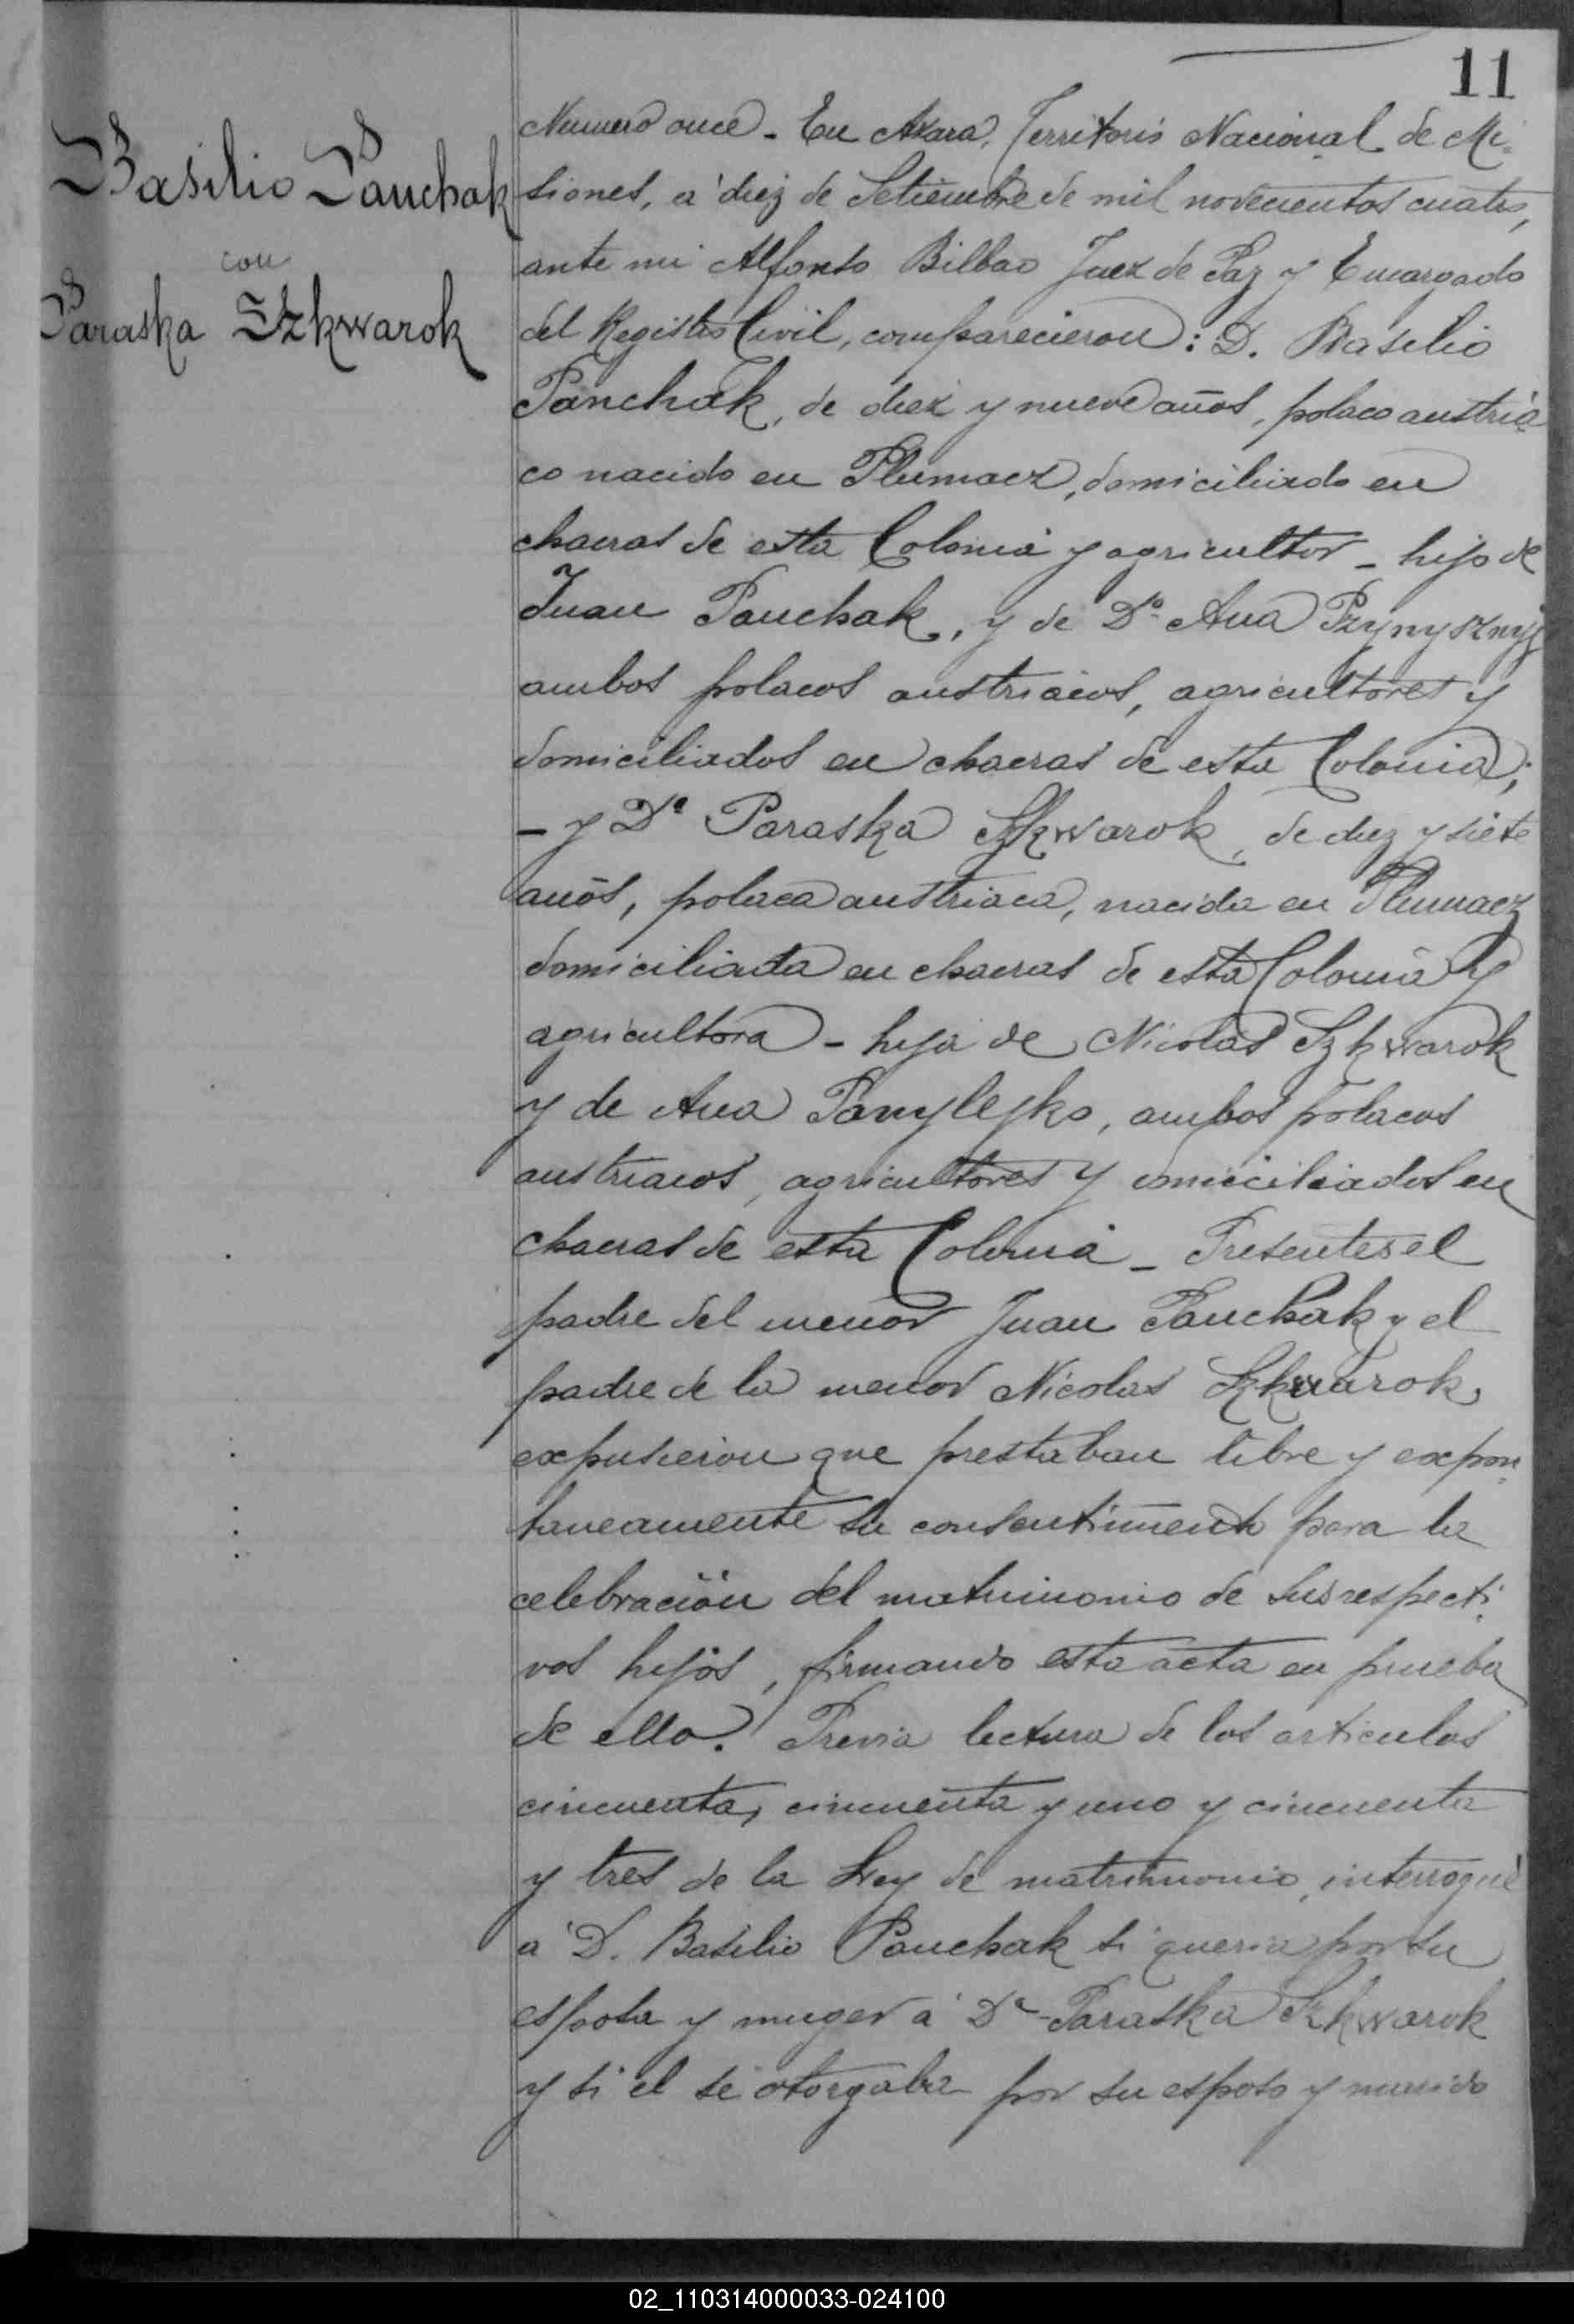 11
Basilio Panchak
con
Paraska Szkwarok
Numero once - En Azara, Territorio Nacional de Mi-
siones, a' diez de Setiembre de mil novecientos cuatro,
ante mi Alfonso Bilbao Juez de Paz y Encargado
del Registro Civil, comparecieron: D. Basilio
Panchak, de diez y nueve años, polaco austria
co nacido en Tlumacz, domiciliado en
chacras de esta Colonia y agricultor - hijo de
Juan Panchak, y de Dª Ana Pzynysznyj
ambos polacos austriacos, agricultores y
domiciliados en chacras de esta Colonia;
- y Dª Paraska Szkwarok, de diez y siete
años, polaca austriaca, nacida en Tlumacz
domiciliada en chacras de esta Colonia y
agricultora - hija de Nicolas Szkwarok
y de Ana Panylejko, ambos polacos
austriacos, agricultores y domiciliados en
chacras de esta Colonia - Presentes el
padre del menor Juan Panchak y el
padre de la menor Nicolas Szkwarok,
expusieron que prestaban libre y expon-
taneamente su consentimiento para la
celebración del matrimonio de sus respecti-
vos hijos, firmando esta acta en prueba
de ello. Previa lectura de los articulos
cincuenta, cincuenta y uno y cincuenta
y tres de la Ley de matrimonio, interrogué
a' D. Basilio Panchak si queria por su
esposa y muger a' Dª Paraska Szkwarok
y si el se otorgaba por su esposo y marido
02_110314000033-024100